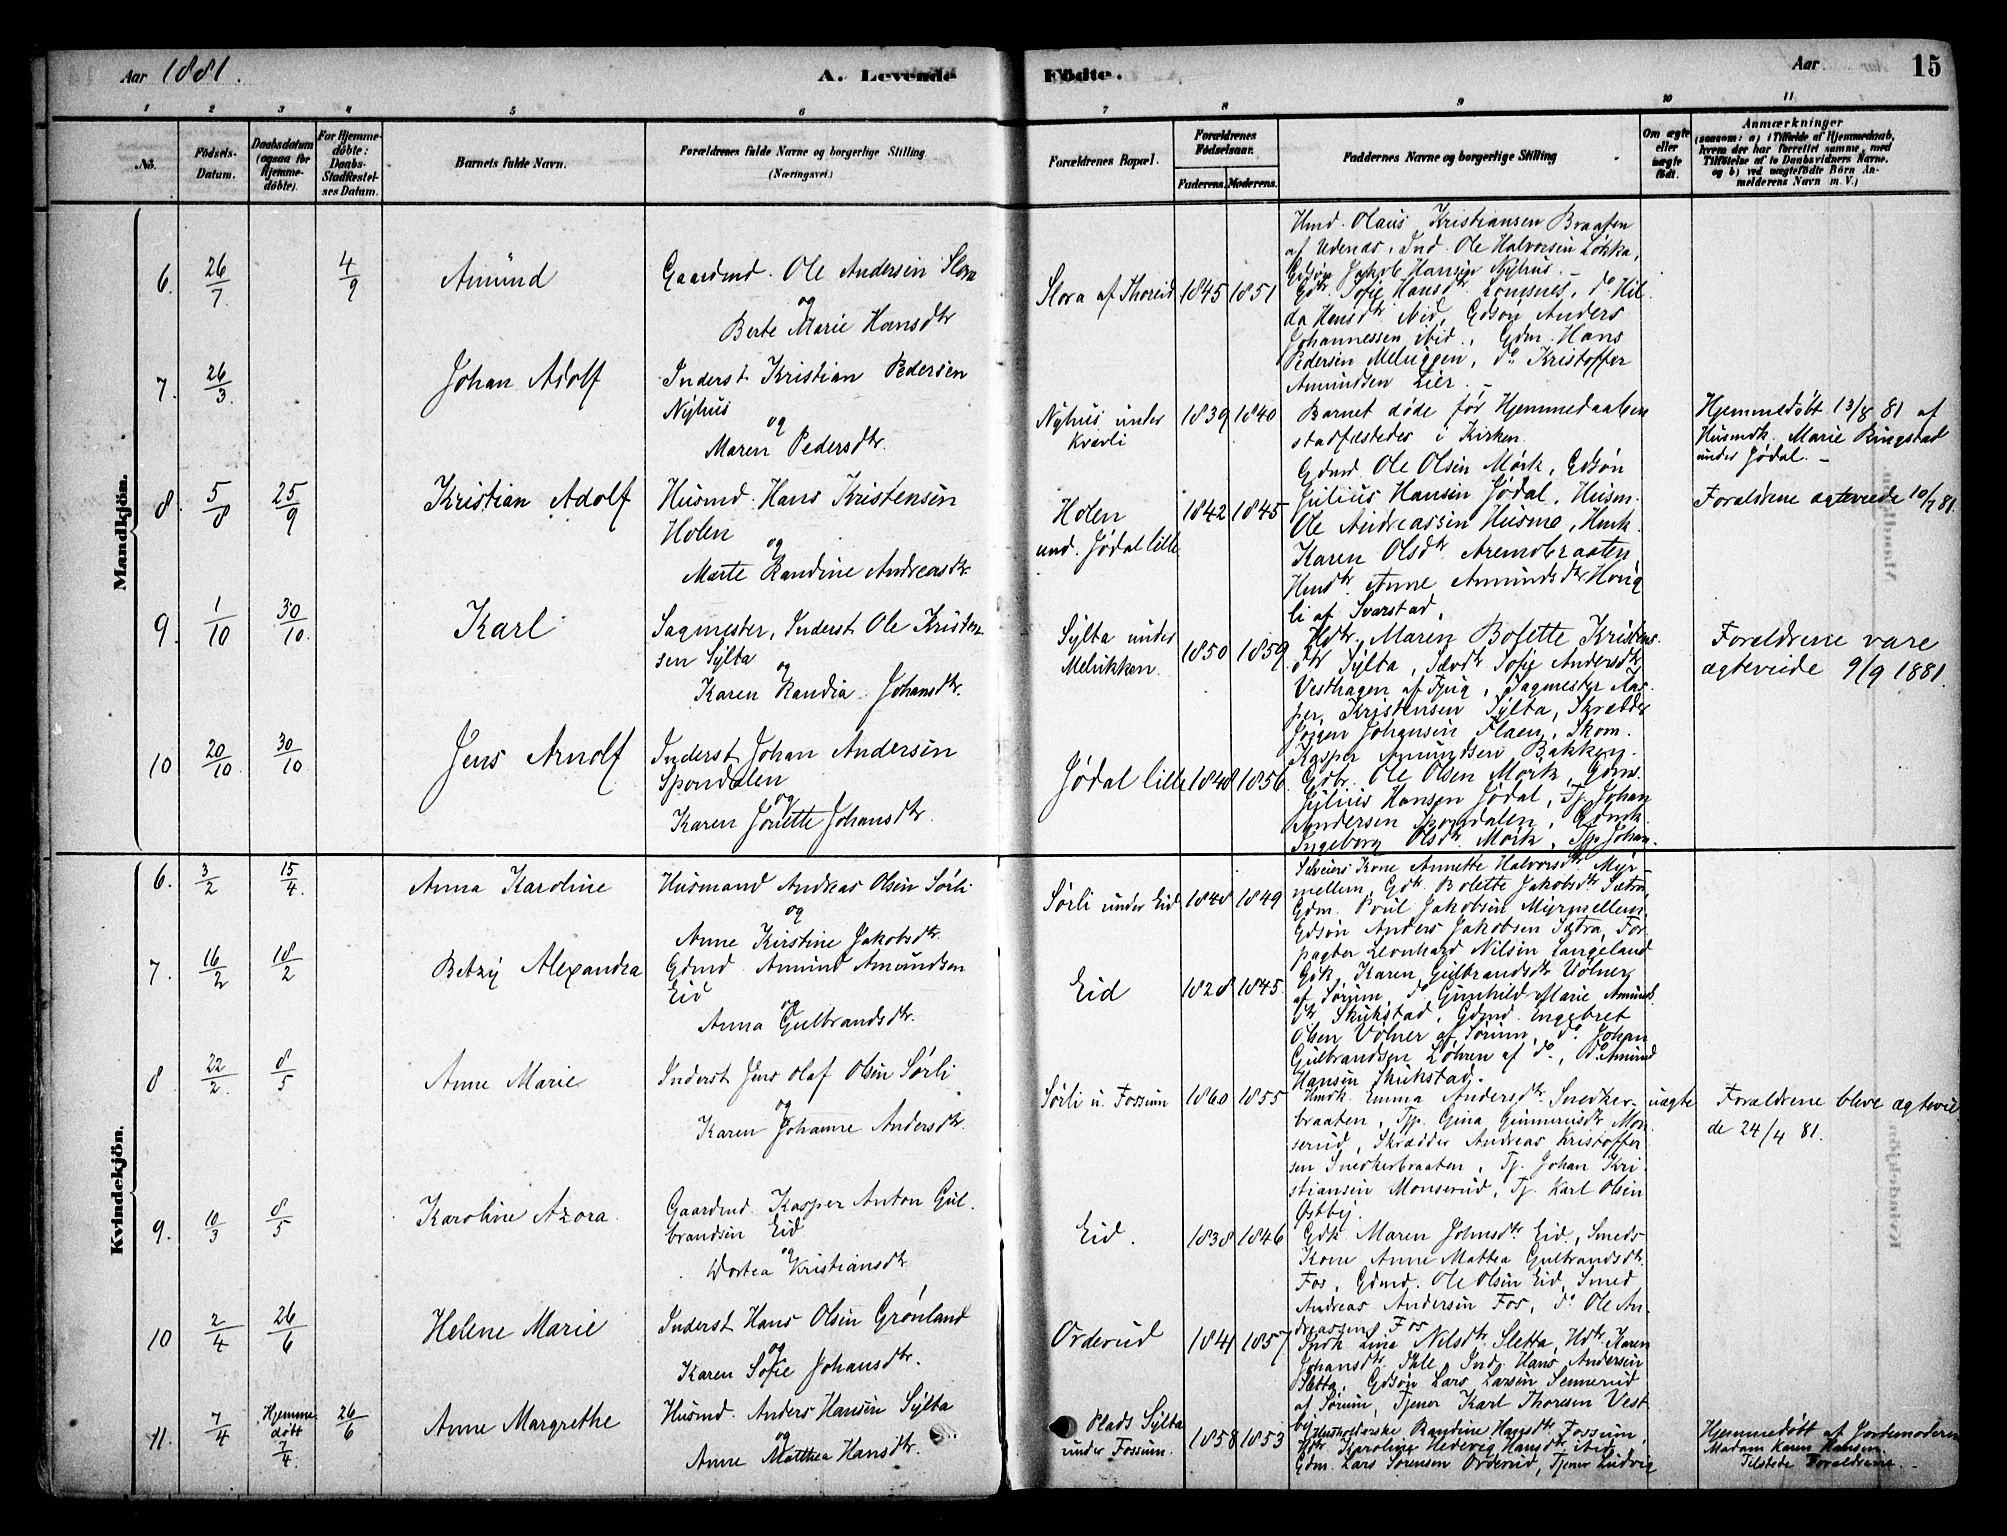 Aar 1881.
A. Levende Fødte.
Aar
15
1 2 3 4 5 6 7 8 9 10 11
No.
Fødsels-Datum.
Daabsdatum (ogsaa for Hjemmedøbte).
For Hjemmedøbte: Daabs-Stadfæstelses Datum.
Barnets fulde Navn.
Forældrenes fulde Navne og borgerlige Stilling (Næringsvei.)
Forældrenes Bopæl.
Forældrenes Fødselsaar.
Faderens. Moderens.
Faddernes Navne og borgerlige Stilling
Om ægte eller uægte født.
Anmærkninger
(saasom: a) i Tilfælde af Hjemmedaab, hvem der har forrettet samme, med Tilføielse af to Daabsvidners Navne, og b) ved uægtefødte Børn Anmelderens Navn m. V.)
Mandkjön.
6. 26/7 4/9 Amund
Gaardmd. Ole Andersen Slora
og
Berte Marie Hansdtr
Slora af Thoreid 1845 1851
Hmd. Olaus Kristiansen Braaten
af Udenæs, Ind. Ole Halvorsen Løkka,
Gdsøn Jakob Hansen Nyhus. –
Gdtr. Sofie Hansdtr. Lomsnes, do Hil-
da Hansdtr ibid, Gdsøn Anders
Johannessen ibid., Gdm. Hans
Pedersen Meluggen, do. Kristoffer
Amundsen Lier. –
7. 26/3 Johan Adolf
Inderst Kristian Pedersen
Nyhus
og
Maren Pedersdtr.
Nyhus under
Kværli
1839 1840
Barnet døde før Hjemmedaaben
stadfæstedes i Kirken.
Hjemmedøbt 13/8 81 af
Husmdk. Marie Ringstad
under Jødal. –
8. 5/8 25/9 Kristian Adolf
Husmd. Hans Kristensen
Holen
og
Marte Randine Andreasdtr.
Holen
und. Jødal lille
1842 1845
Gdmd Ole Olsen Mørk, Gdsøn
Julius Hansen Jødal, Husm.
Ole Andreassen Husmo, Hmk.
Karen Olsdtr Aremobraaten,
Hmdtr. Anne Amundsdtr Hovig
li af Svarstad.
Forældrene ægteviede 10/7 81.
9. 1/10 30/10. Karl
Sagmester, Inderst Ole Kristen-
sen Sylta
og
Karen Randia Johansdtr.
Sylta under
Melrikken
1850 1859
Hdtr. Maren Bosette Kristens-
dtr Sylta, Sædtr. Sofie Andersdtr,
Vesthagen af Fjuig, Sagmester Kas-
per Kristensen Sylta, Skrædder
Jørgen Johansen Flaen, Skom.
Kasper Amundsen Bakken.
Forældrene vare
ægteviede 9/9 1881.
10 20/10 30/10 Jens Arnolf
Inderst Johan Andersen
Spondalen
og
Karen Jonette Johansdtr.
Jødal lille 1848 1856
Gdbr. Ole Olsen Mørk, Gdms.
Julius Hansen Jødal, Tj. Johan
Andersen Spondalen, Gdmk.
Ingeborg Olsdtr. Mørk, Tjp. Johan-
Kvindekjön.
6. 3/2 15/4. Anna Karoline
Husmand Andreas Olsen Sørli
og
Anne Kirstine Jakobsdtr.
Sørli under Eid 1848 1849
Kone Annette Halvorsdtr Myr-
mellem, Gdtr. Bolette Jakobsdtr Sætra,
Gdm. Poul Jakobsen Myrmellem,
Gdsøn Anders Jakobsen Sætra, For-
pagter Leonhard Nilsen Langeland
7. 16/2 18/2 Betzy Alexandra
Gdmd. Amund Amundsen
Eid
og
Anna Gulbrandsdtr.
Eid 1828 1845
Gdk. Karen Gulbrandsdtr Vølner
af Sørum, do Gunhild Marie Amunds-
dtr Skukstad, Gdmd. Engebret
Olsen Vølner af Sørum, do. Johan
Gulbrandsen Løhren af do., do. Amund
Hansen Skukstad.
8 22/2. 8/5 Anne Marie
Inderst Jens Olaf Olsen Sørli
og
Karen Johanne Andersdtr.
Sørli u. Fossum 1860 1855
Hmdk. Emma Andersdtr. Snedker-
braaten, Tjp. Gina Gunneriusdtr Mon-
serud, Skrædder Andreas Kristoffer-
sen Snedkerbraaten, Tj. Johan Kri-
stiansen Monserud, Tj. Karl Olsen
Østby.
uægte
Forældrene bleve ægtevie
de 24/4 81.
9. 10/3 8/5 Karoline Azora.
Gaardmd. Kasper Anton Gul-
brandsen Eid
og
Dortea Kristiansdtr.
Eid. 1838 1846
Gdk. Maren Johnsdtr Eid, Smeds-
Kone Anne Mattea Gulbrandsdtr.
Fos, Gdmd. Ole Olsen Eid, Smed
Andreas Andersen Fos, do. Ole An-
dreassen Fos
10 2/4 26/6 Helene Marie
Inderst Hans Olsen Grønland
og
Karen Sofie Johansdtr.
Orderud 1841 1857
Indk. Lina Nilsdtr. Sletta, Hdtr. Karen
Johansdtr. Ihle, Ind. Hans Andersen
Sletta, Gdsøn Lars Larsen Sennerud
af Sørum, Tjener Karl Thoresen Vest-
by
11. 7/4 Hjemme
døbt
7/4
26/6 Anne Margrethe
Husmd. Anders Hansen Sylta
og
Anne Matthea Hansdtr.
Plads Sylta
under Fossum.
1858 1853
Husholderske Randine Hansdtr Fossum,
Hdtr. Karoline Hedevig Hansdtr ibid.
Gdm. Lars Sørensen Orderud, Tjener Ludvig
Hjemmedøbt af Jordemoderen
Madam Karen Hansen.
Tilstede Forældrene. –